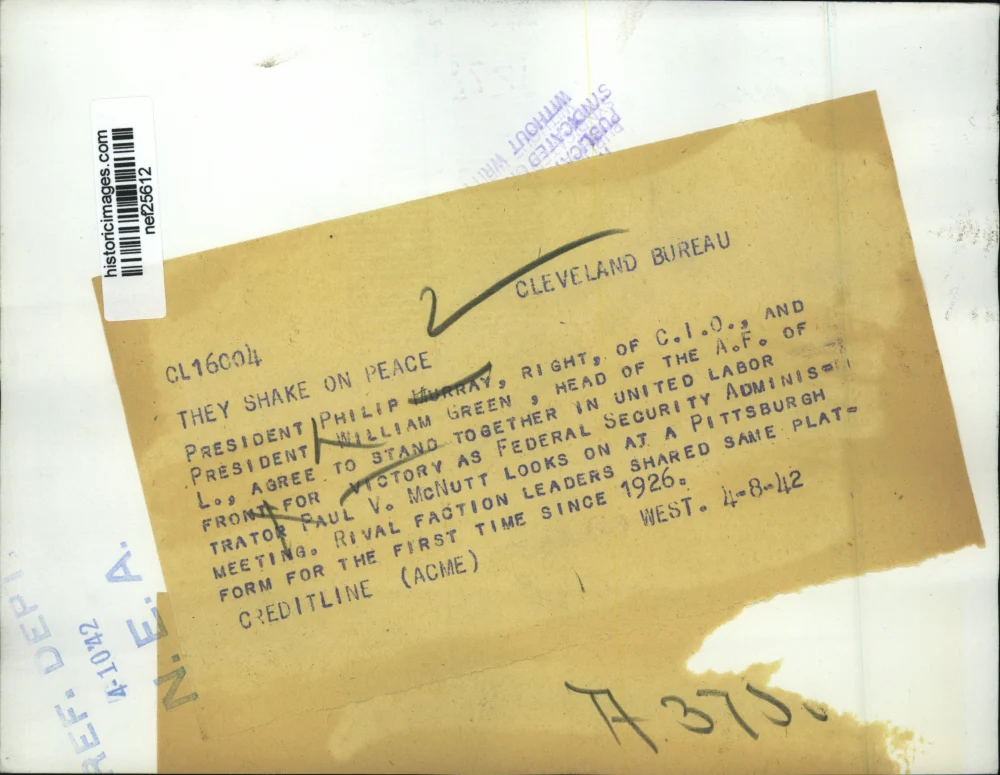 historicimages.com
nef25612
PUBLICA
SYNDICATED
WITHOUT WRI
CLEVELAND BUREAU
2
CL16004
THEY SHAKE ON PEACE
PRESIDENT PHILIP MURRAY, RIGHT, OF C.I.O., AND
PRESIDENT WILLIAM GREEN , HEAD OF THE A.F. OF
L., AGREE TO STAND TOGETHER IN UNITED LABOR
FRONT FOR VICTORY AS FEDERAL SECURITY ADMINIS=
TRATOR PAUL V. MCNUTT LOOKS ON AT A PITTSBURGH
MEETING. RIVAL FACTION LEADERS SHARED SAME PLAT=
FORM FOR THE FIRST TIME SINCE 1926.
WEST. 4-8-42
CREDITLINE (ACME)
REF. DEPT
4-10-42
N. E. A.